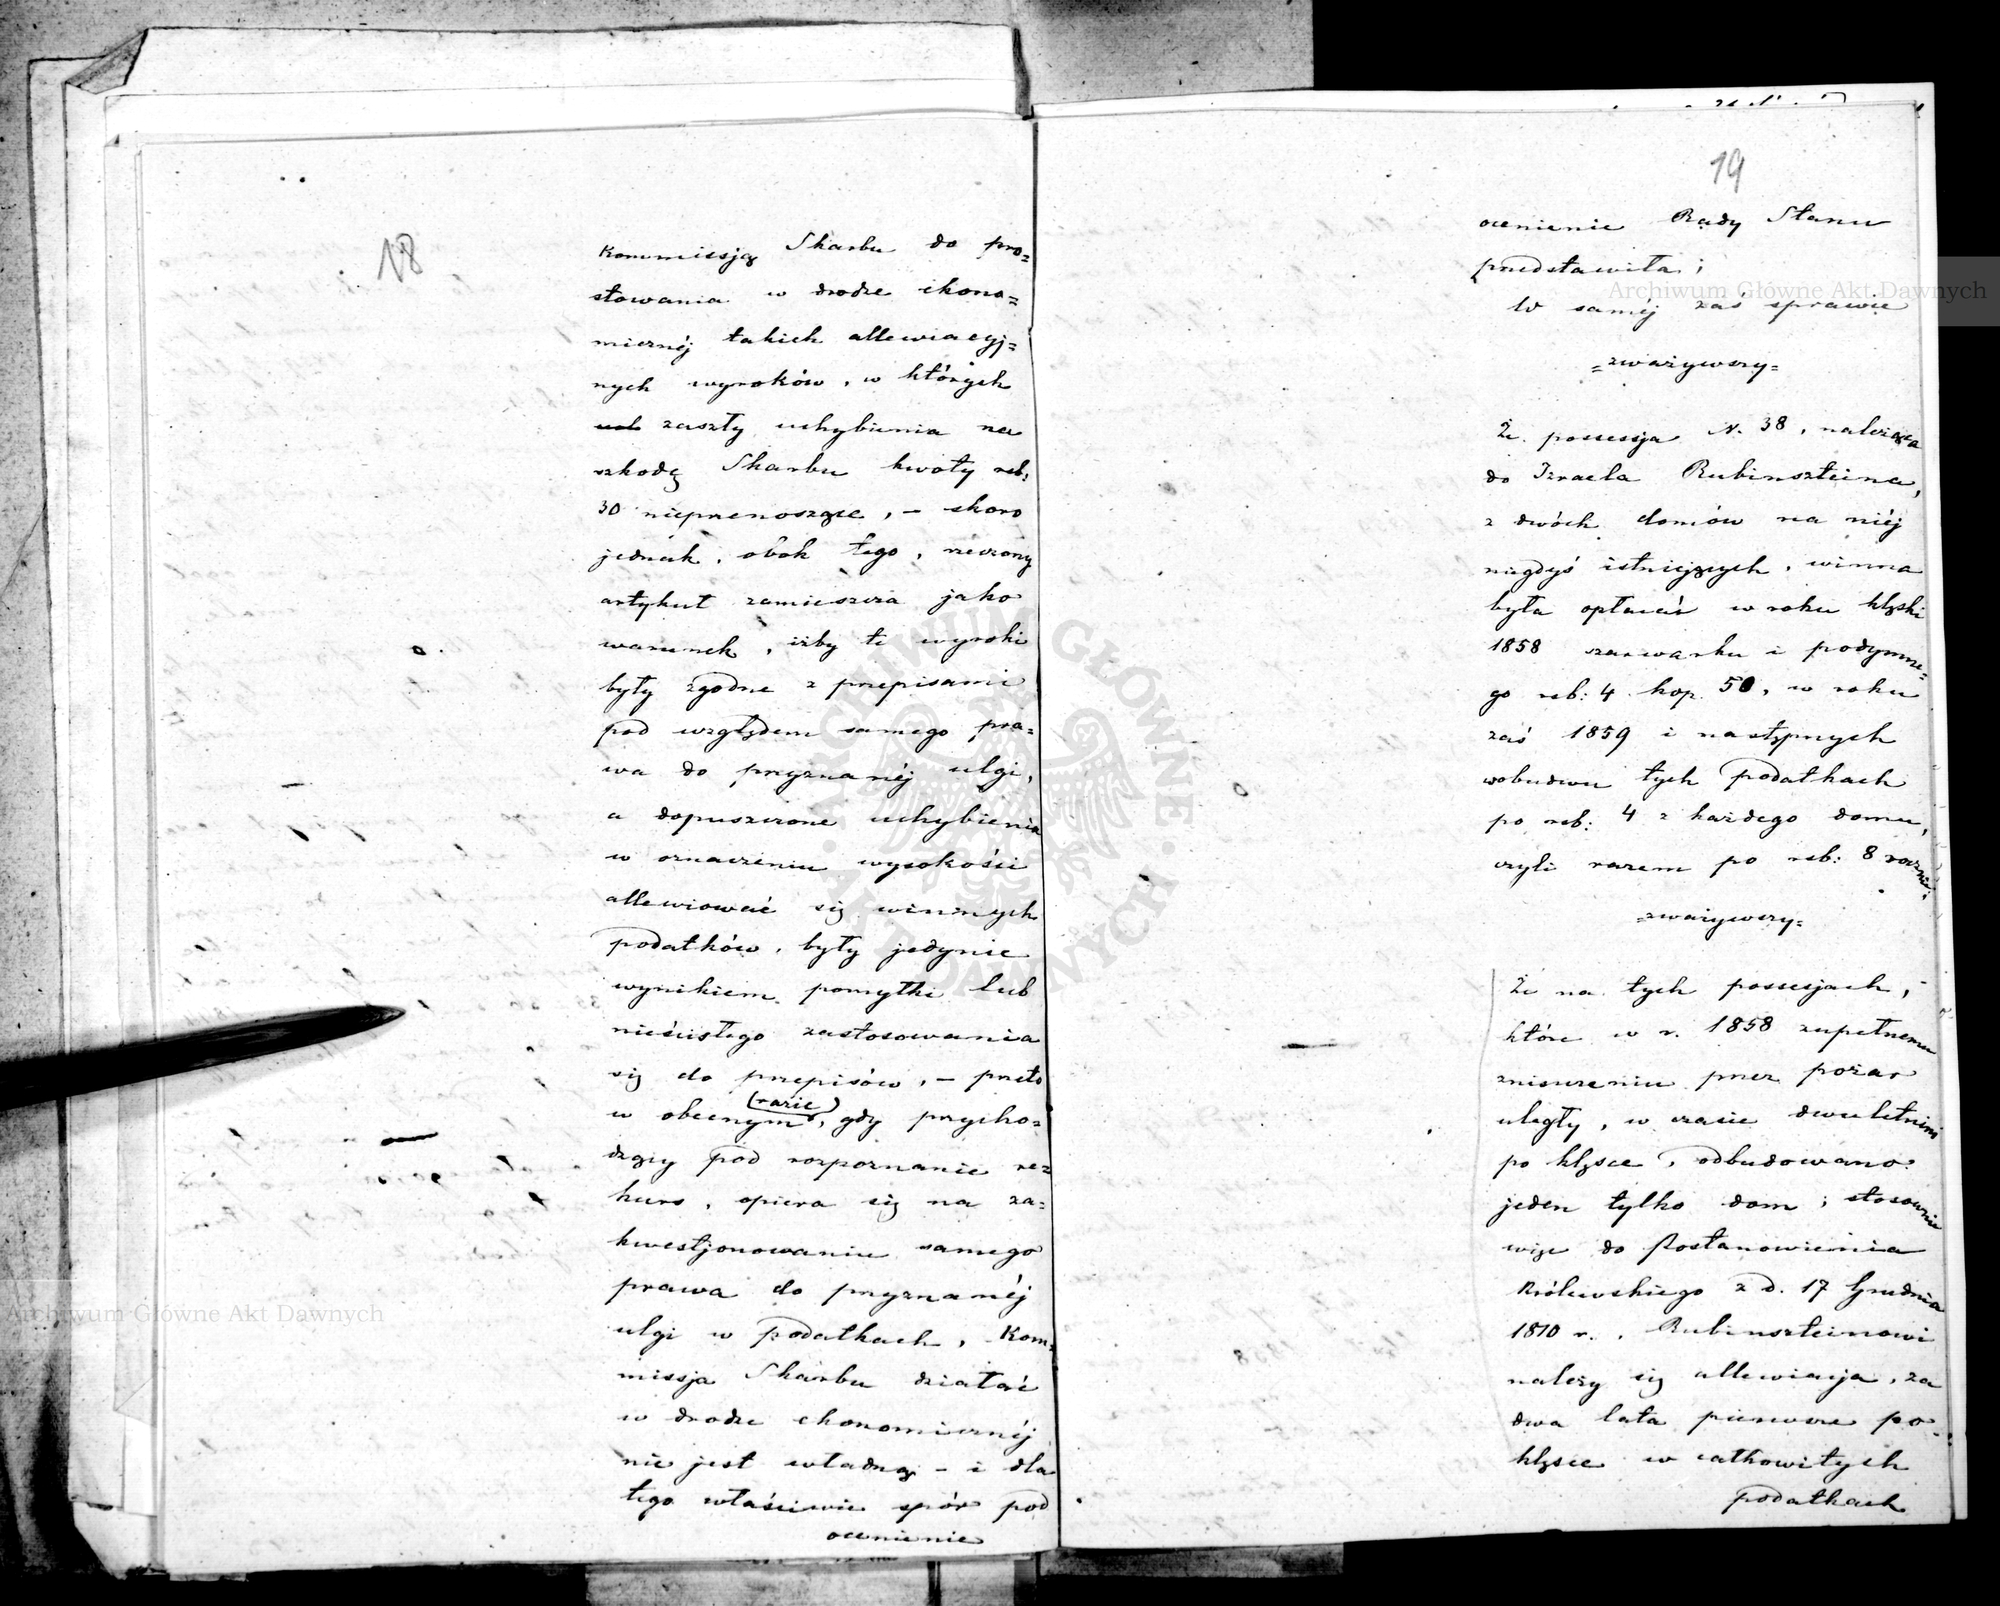 18
Kommissją Skarbu do pro=
stowania w drodze ekono=
micznéj takich allewiacyj=
nych wyroków, w których
zaszły uchybienia na
szkodę Skarbu kwoty rub:
30 nieprzenoszące, – skoro
jednak, obok tego, rzeczony
artykuł zamieszcza jako
warunek, iżby te wyroki
były zgodne z przepisami
pod względem samego pra=
wa do przyznanéj ulgi,
a dopuszczone uchybienia
w oznaczeniu wysokości
allewiować się winnych
podatków, były jedynie
wynikiem pomyłki lub
nieścisłego zastosowania
się do przepisów, – przeto
w obecnym (razie), gdy przycho=
dzący pod rozpoznanie re=
kurs, opiera się na za=
kwestjonowaniu samego
prawa do przyznanéj
ulgi w podatkach, Kom=
missja Skarbu działać
w drodze ekonomicznéj
nie jest władną – i dla
tego właściwie spór pod
ocenienie
19
ocenienie Rady Stanu
przedstawiła;
W saméj zaś sprawie
=zważywszy=
Że possessja N. 38, należąca
do Izraela Rubinszteina,
z dwóch domów na niéj
niegdyś istniejących, winna
była opłacać w roku klęski
1858 szarwarku i podymne=
go rub: 4 kop. 50, w roku
zaś 1859 i następnych
wobudwu tych podatkach
po rub: 4 z każdego domu,
czyli razem po rub: 8 rocznie;
=zważywszy=
Że na tych possesjach,
które w r. 1858 zupełnemu
zniszczeniu przez pożar
uległy, w czasie dwuletnim
po klęsce, odbudowano
jeden tylko dom; stosownie
więc do Postanowienia
Królewskiego z d. 17 Grudnia
1810 r., Rubinszteinowi
należy się allewiacja, za
dwa lata pierwsze po
klęsce w całkowitych
podatkach
Archiwum Główne Akt Dawnych
Archiwum Główne Akt Dawnych
ARCHIWUM GŁÓWNE AKT DAWNYCH